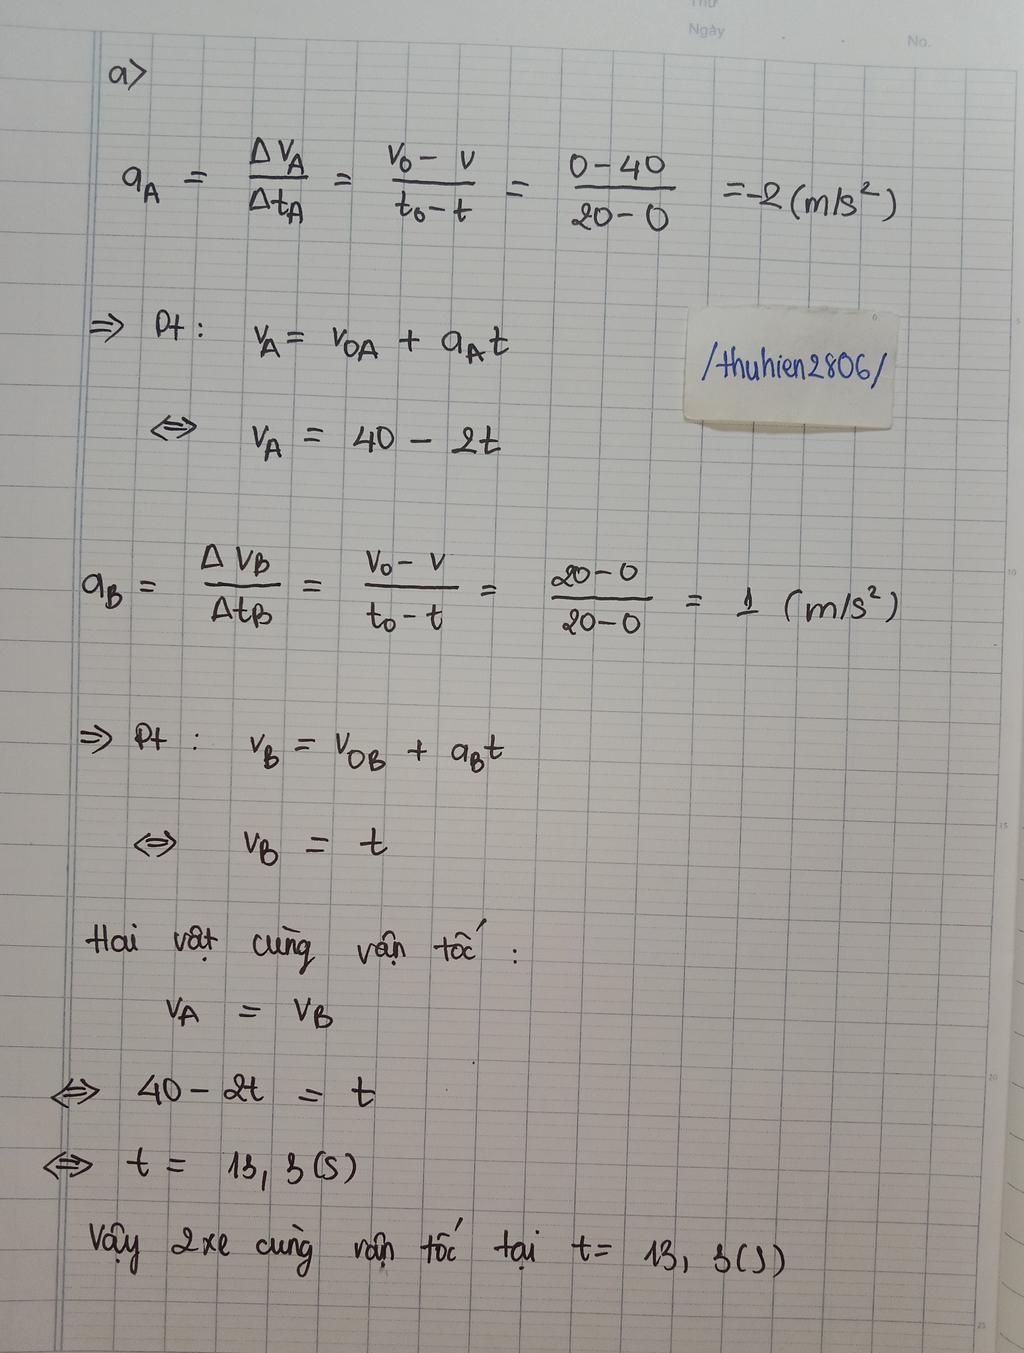 Thứ
Ngày . . No.
a>
a_A = ΔV_A / Δt_A = (v_0 - v) / (t_0 - t) = (0 - 40) / (20 - 0) = -2 (m/s²)
⇒ Pt : v_A = v_0A + a_A t
/thuhien2806/
⇔ v_A = 40 - 2t
a_B = ΔV_B / Δt_B = (V_0 - v) / (t_0 - t) = (20 - 0) / (20 - 0) = 1 (m/s²)
⇒ Pt : v_B = v_0B + a_B t
⇔ v_B = t
Hai vật cùng vận tốc :
v_A = v_B
⇔ 40 - 2t = t
⇔ t = 13, 3 (s)
Vậy 2 xe cùng vận tốc tại t = 13, 3 (s)